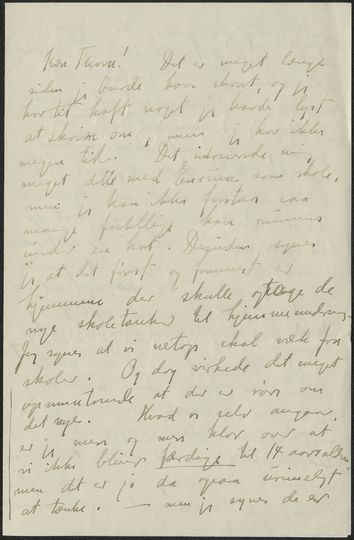 Kære Thora! Det er meget længe
siden jeg burde have skrevet, og jeg
har tit haft noget jeg havde lyst
at skrive om, men jeg har ikke
megen tid. Det interesserede mig
meget dette med som skole,
men jeg kan ikke forstaa saa
mange forskellige kan rummes
under een hat. Desuden synes
jeg at det først og fremmest er
hjemmene der skulle optage de
nye skoletanker til hjemmeundervisning.
Jeg synes at vi netop skal væk fra
skoler. Og dog virkede det meget
opmuntrende at der er røre om
det nye. Hvad vi selv angaar,
er jeg mere og mere klar over at
vi ikke bliver færdige til 14 aarsalderen
men det er jo da ogsaa urimeligt
at tænke. — men jeg synes de er